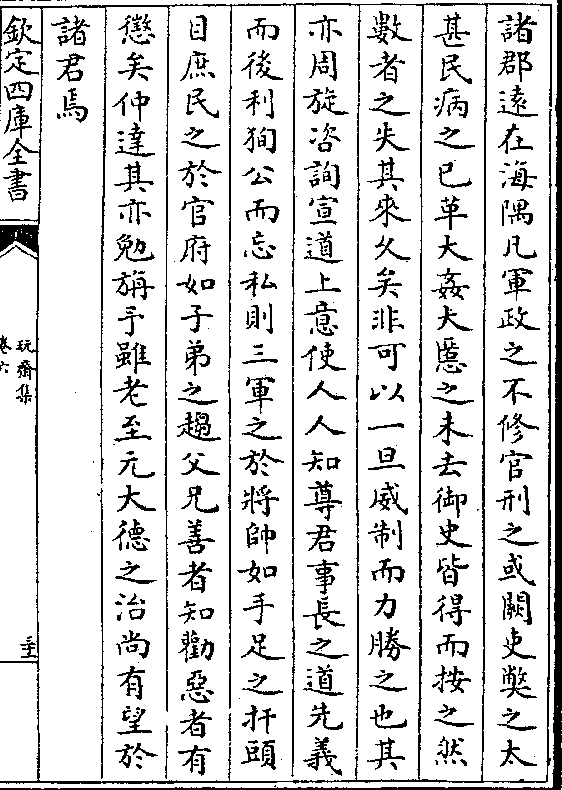 諸郡遠在海隅凡軍政之不修官刑之或闕吏弊之太
甚民病之已革大姦大慝之未去御史皆得而按之然
數者之失其來久矣非可以一旦威制而力勝之也其
亦周旋咨詢宣道上意使人人知尊君事長之道先義
而後利狥公而忘私則三軍之於將帥如手足之扞頭
目庶民之於官府如子弟之趨父兄善者知勸惡者有
懲矣仲達其亦勉旃予雖老至元大德之治尚有望於
諸君焉
欽定四庫全書
玩齋集
卷六